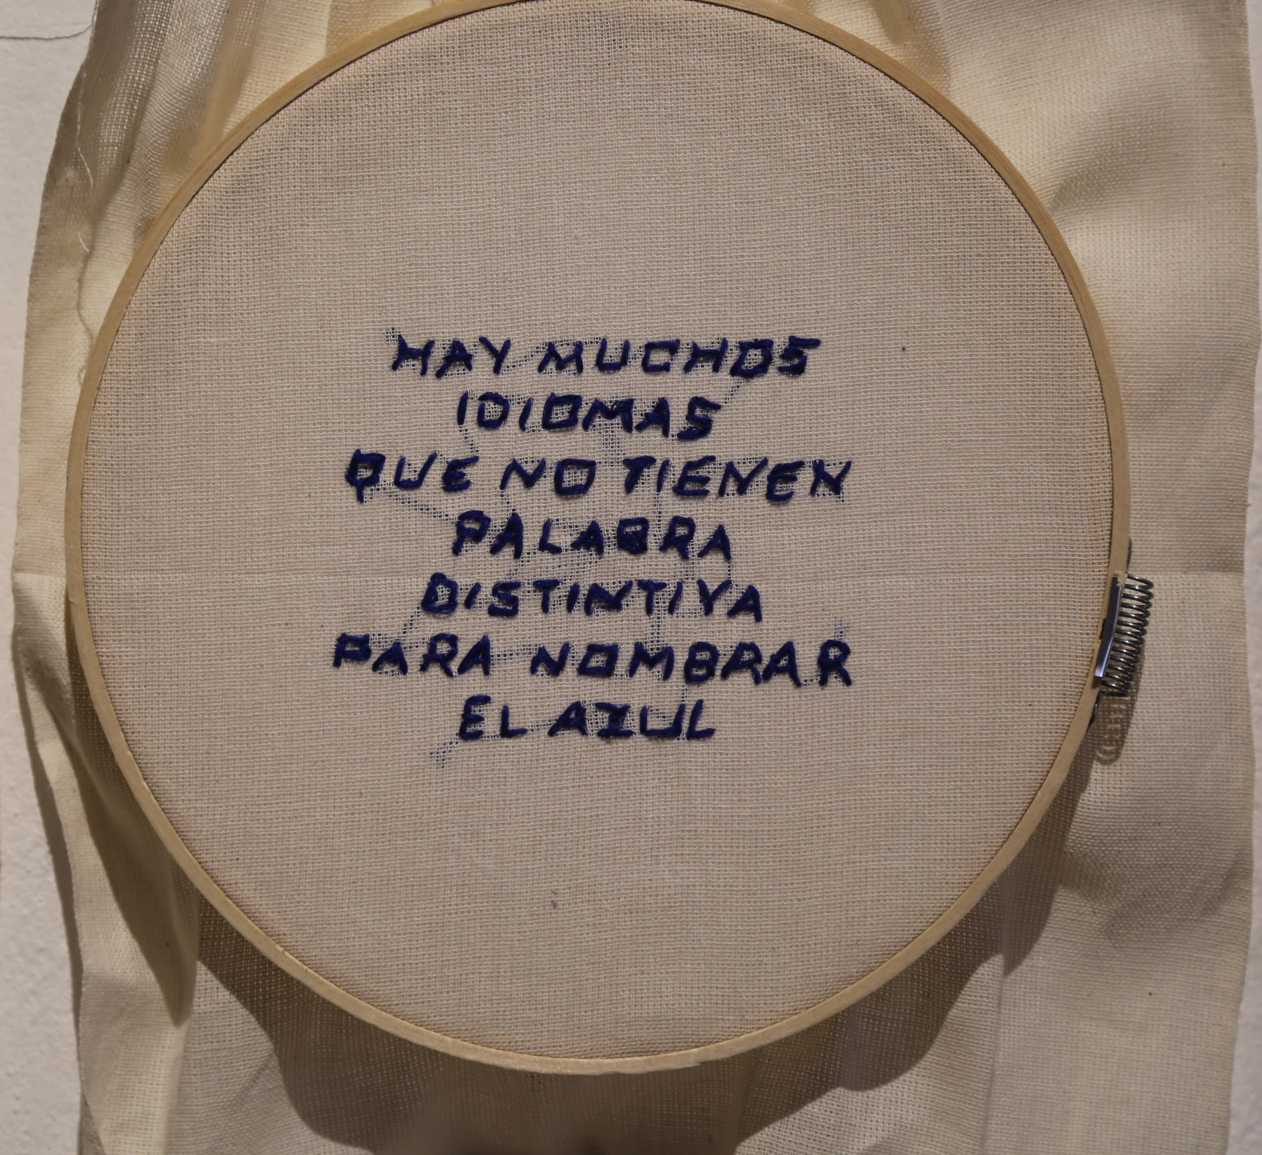 HAY MUCHOS
IDIOMAS
QUE NO TIENEN
PALABRA
DISTINTIVA
PARA NOMBRAR
EL AZUL